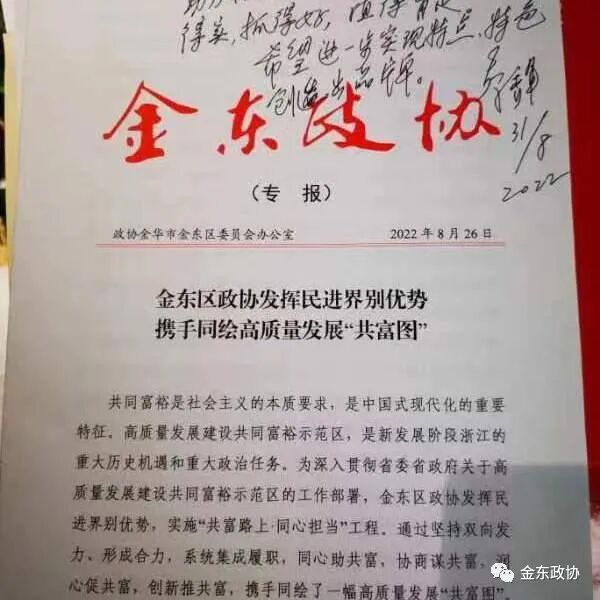 得実,抓得好,值得肯定
希望进一步实现特点、特色
创造出品牌。
31/8
2022
金东政协
(专报)
政协金华市金东区委员会办公室 2022年8月26日
金东区政协发挥民进界别优势
携手同绘高质量发展“共富图”
共同富裕是社会主义的本质要求，是中国式现代化的重要
特征。高质量发展建设共同富裕示范区，是新发展阶段浙江的
重大历史机遇和重大政治任务。为深入贯彻省委省政府关于高
质量发展建设共同富裕示范区的工作部署，金东区政协发挥民
进界别优势，实施“共富路上·同心担当”工程。通过坚持双向发
力、形成合力，系统集成履职，同心助共富，协商谋共富，润
心促共富，创新推共富，携手同绘了一幅高质量发展“共富图”。
金东政协